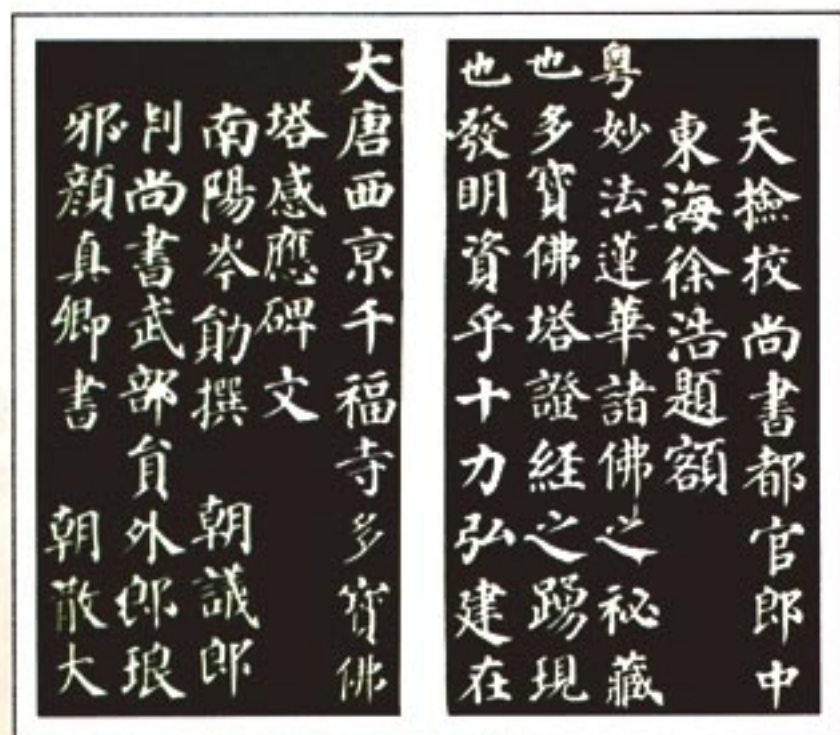 大唐西京千福寺多寶佛
塔感應碑文
南陽岑勛撰 朝議郎
判尚書武部員外郎琅
邪顏真卿書 朝散大
夫撿挍尚書都官郎中
東海徐浩題額
粵妙法蓮華諸佛之祕藏
也多寶佛塔證経之踴現
也發明資乎十力弘建在